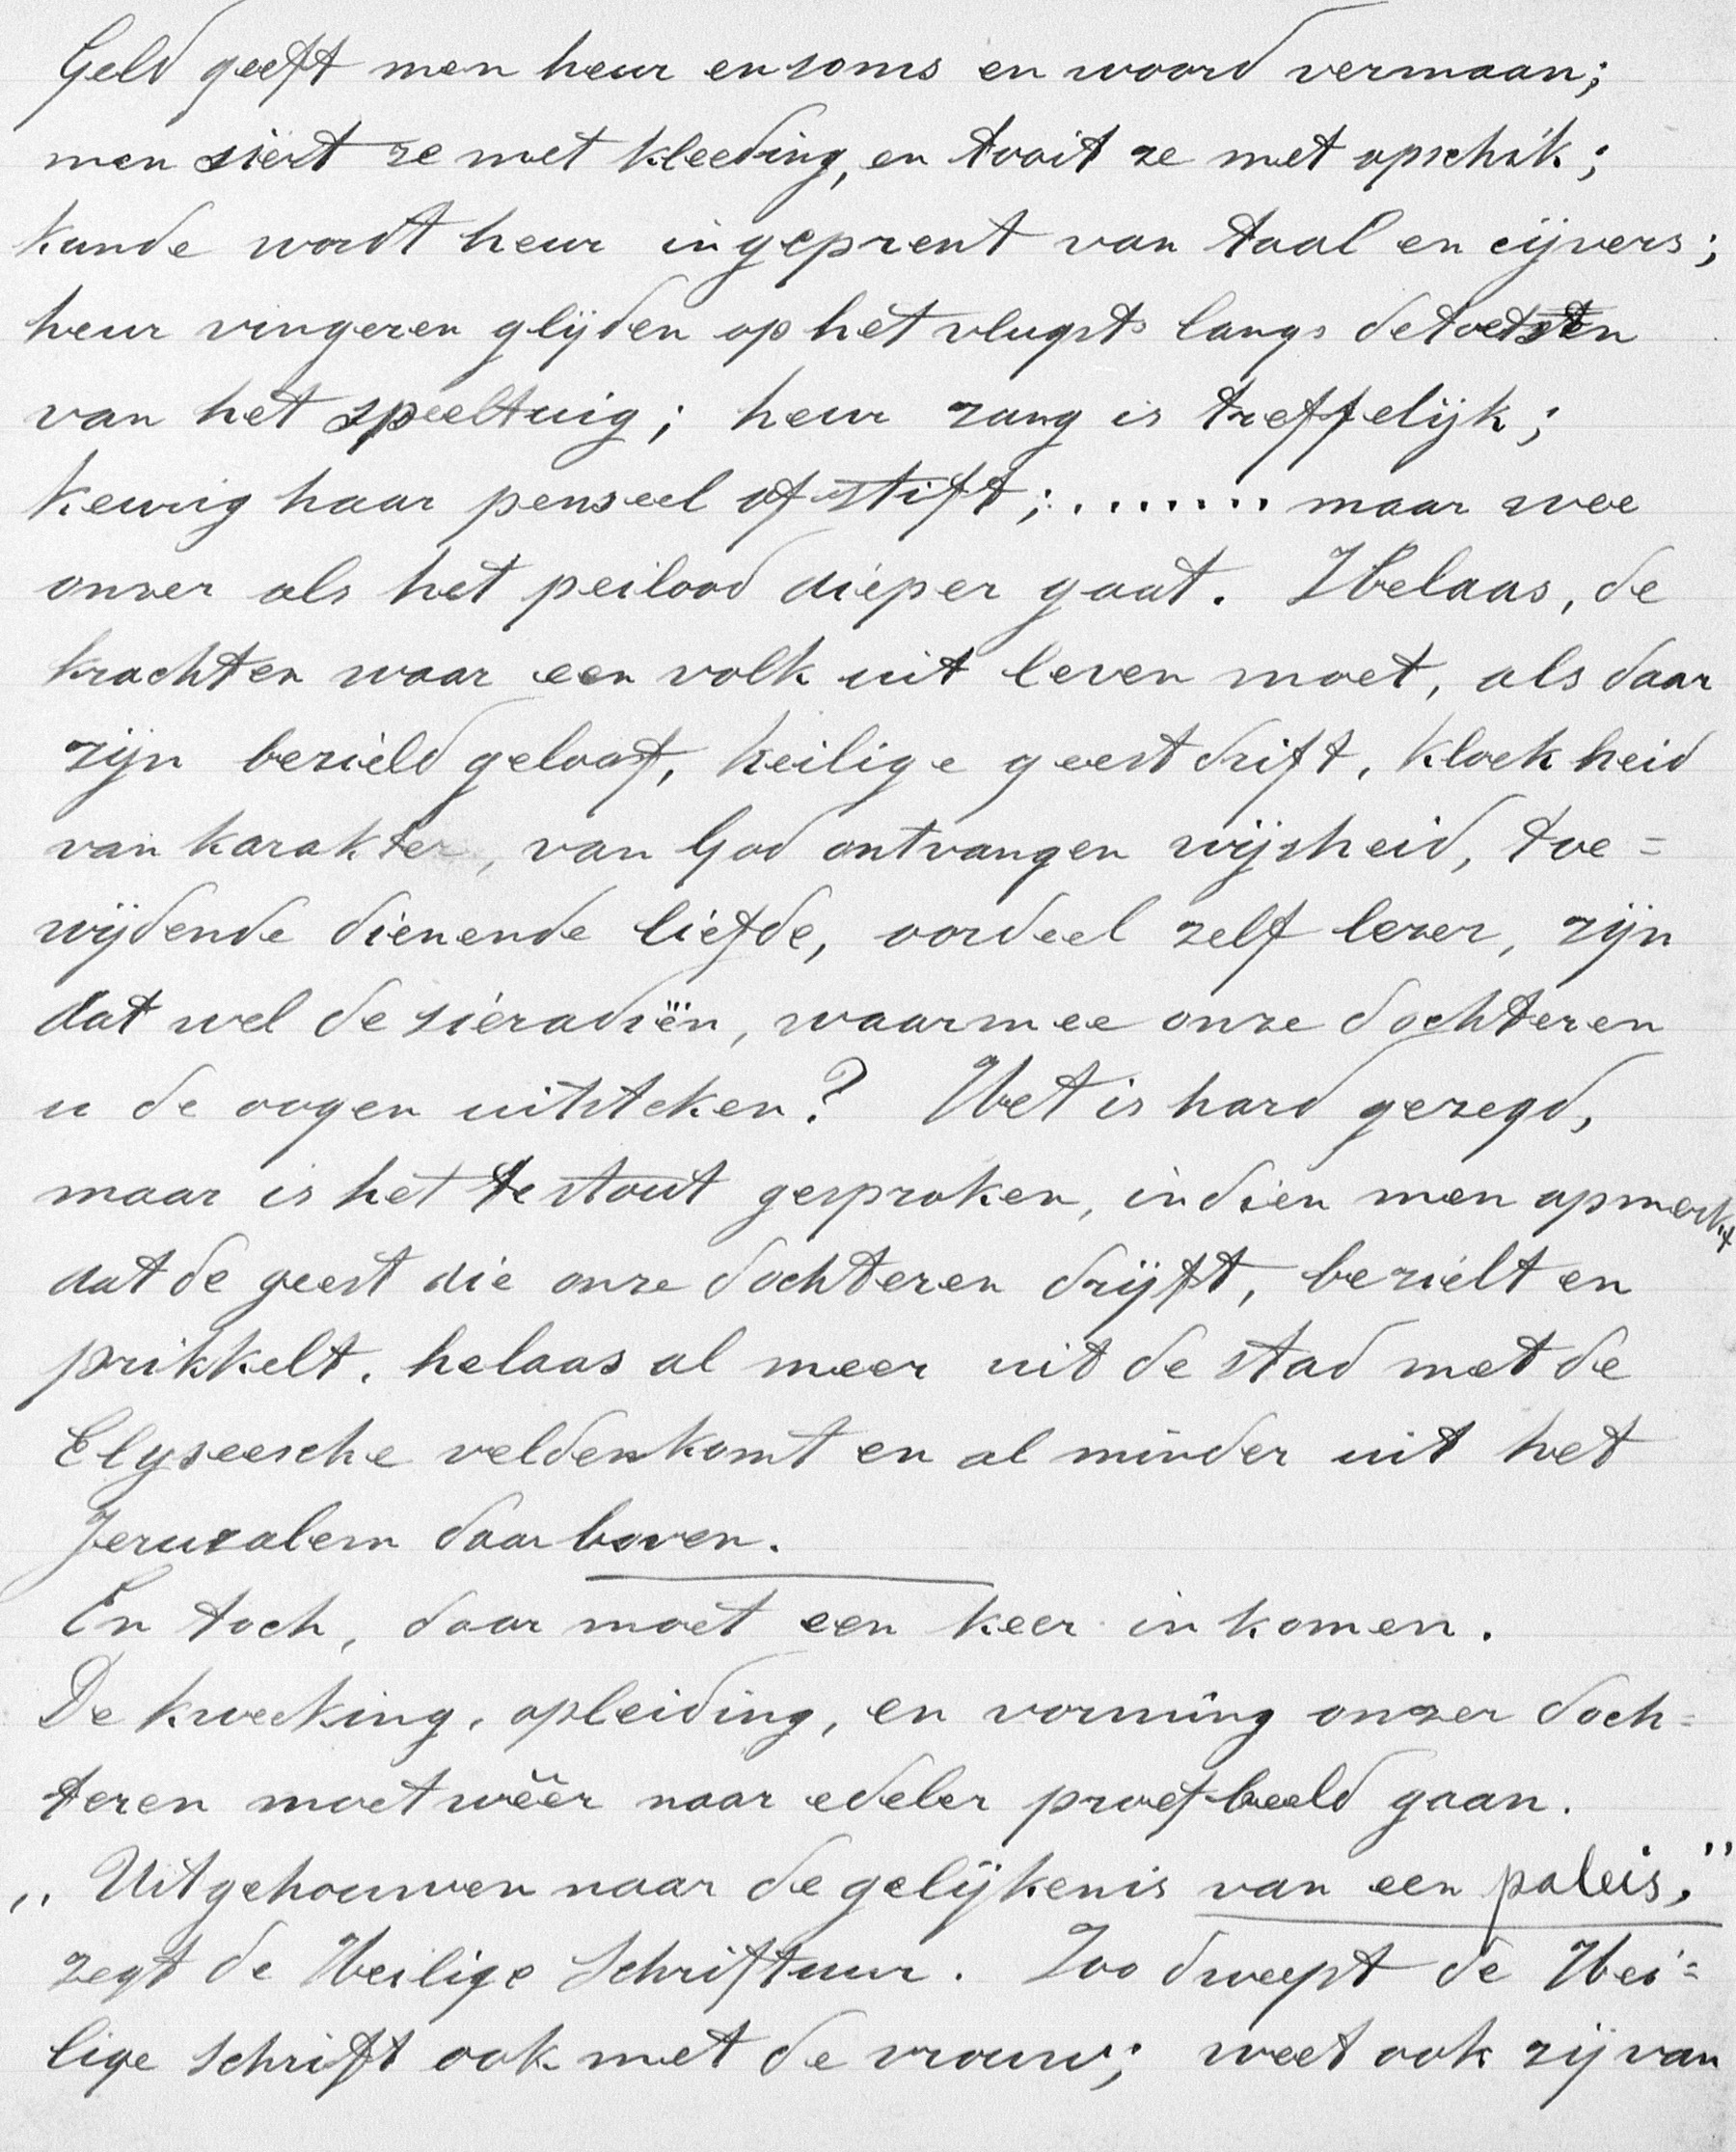 Geld geeft men heur en soms en woord vermaan;
men siert ze met kleeding, en tooit ze met opschik;
kunde wordt heur ingeprent van taal en cijvers;
heur vingeren glijden op het vlugst langs de toetsten
van het speeltuig; heur zang is treffelijk;
keurig haar penseel of stift; ....... maar wee
onzer als het peilood dieper gaat. Helaas, de
krachten waar een volk uit leven moet, als daar
zijn bezield geloof, heilige geestdrift, kloekheid
van karakter, van God ontvangen wijsheid, toe=
wijdende dienende liefde, oordeel zelf lezer, zijn
dat wel de sieradiën, waarmee onze dochteren
u de oogen uitsteken? Het is hard gezegd,
maar is het te stout gesproken, indien men opmerkt
dat de geest die onze dochteren drijft, bezielt en
prikkelt, helaas al meer uit de stad met de
Elyseesche velden komt en al minder uit het
Jeruzalem daarboven.
En toch, daar moet een keer in komen.
De kweeking, opleiding, en vorming onzer doch=
teren moet wêêr naar edeler proefbeeld gaan.
„Uitgehouwen naar de gelijkenis van een paleis,"
zegt de Heilige Schriftuur. Zoo dweept de Hei=
lige Schrift ook met de vrouw; weet ook zij van